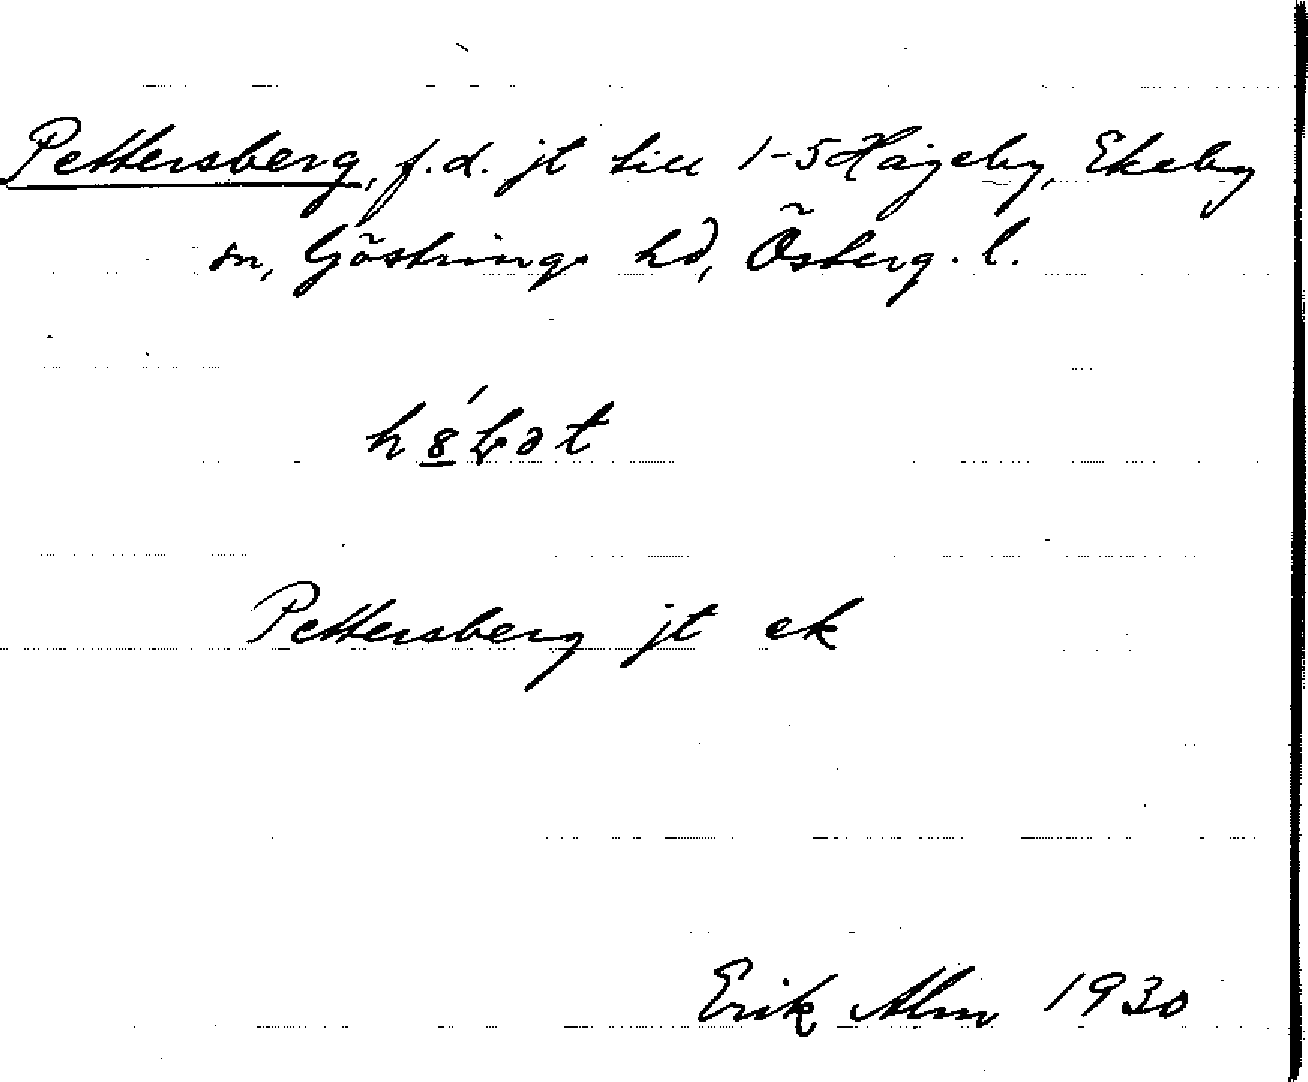 Pettersberg, f.d. jt till 1-5 Hageby, Ekeby
sn, Göstrings hd, Österg. l.
Pettersberg jt ek
Erik Alm 1930